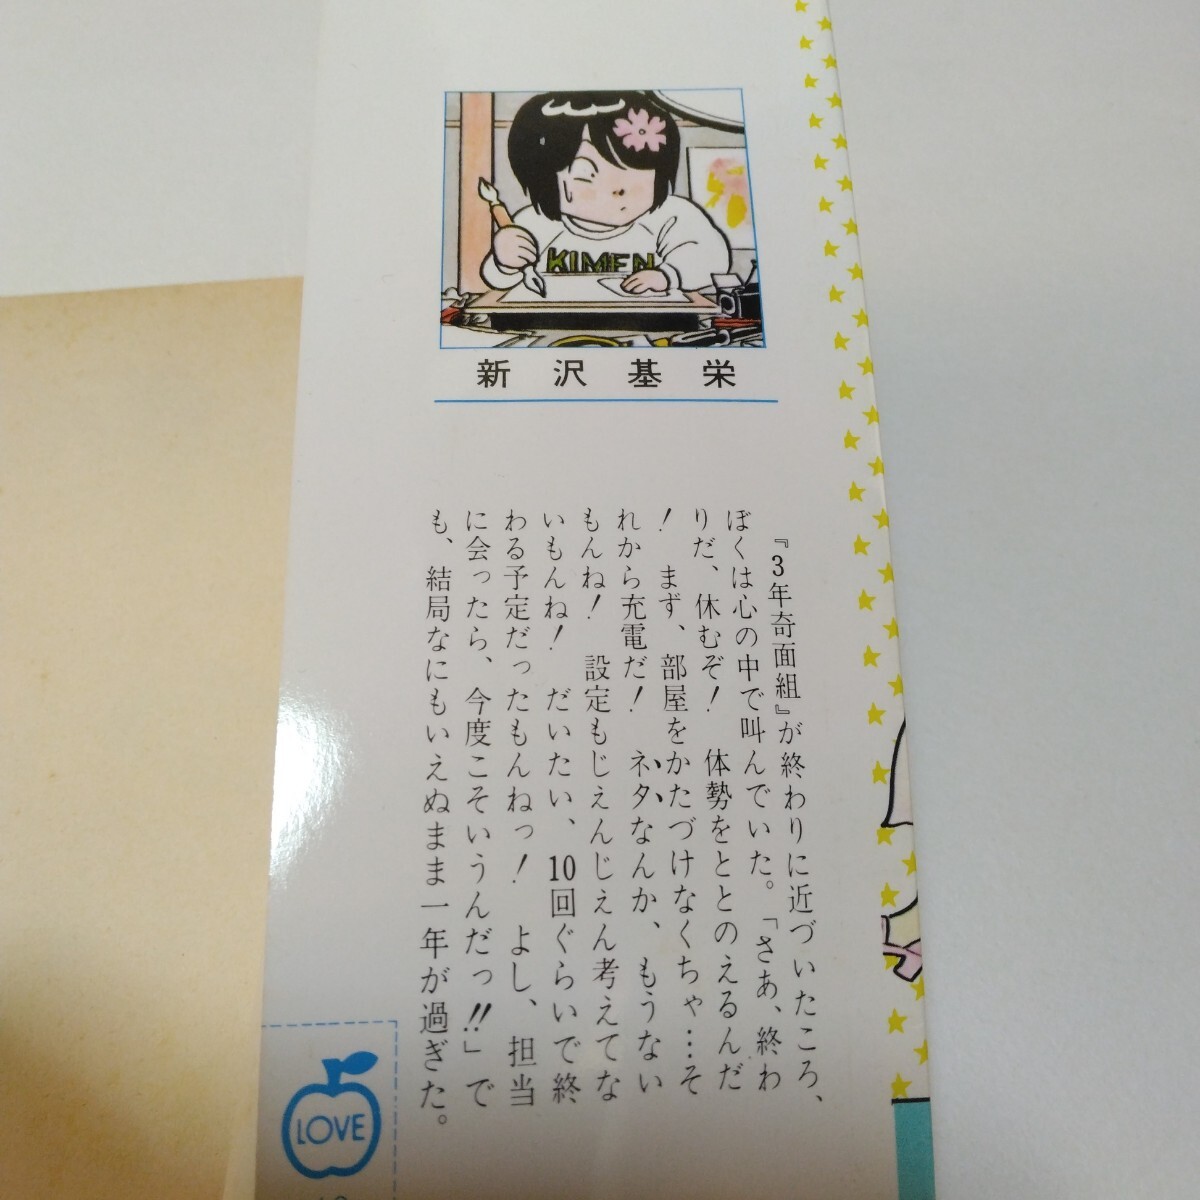 KIMEN
新沢基栄
『3年奇面組』が終わりに近づいたころ、
ぼくは心の中で叫んでいた。「さあ、終わ
りだ、休むぞ！　体勢をととのえるんだ
！　まず、部屋をかたづけなくちゃ…そ
れから充電だ！　ネタなんか、もうない
もんね！　設定もじぇんじぇん考えてな
いもんね！　だいたい、10回ぐらいで終
わる予定だったもんねっ！　よし、担当
に会ったら、今度こそいうんだっ!!」で
も、結局なにもいえぬまま一年が過ぎた。
LOVE